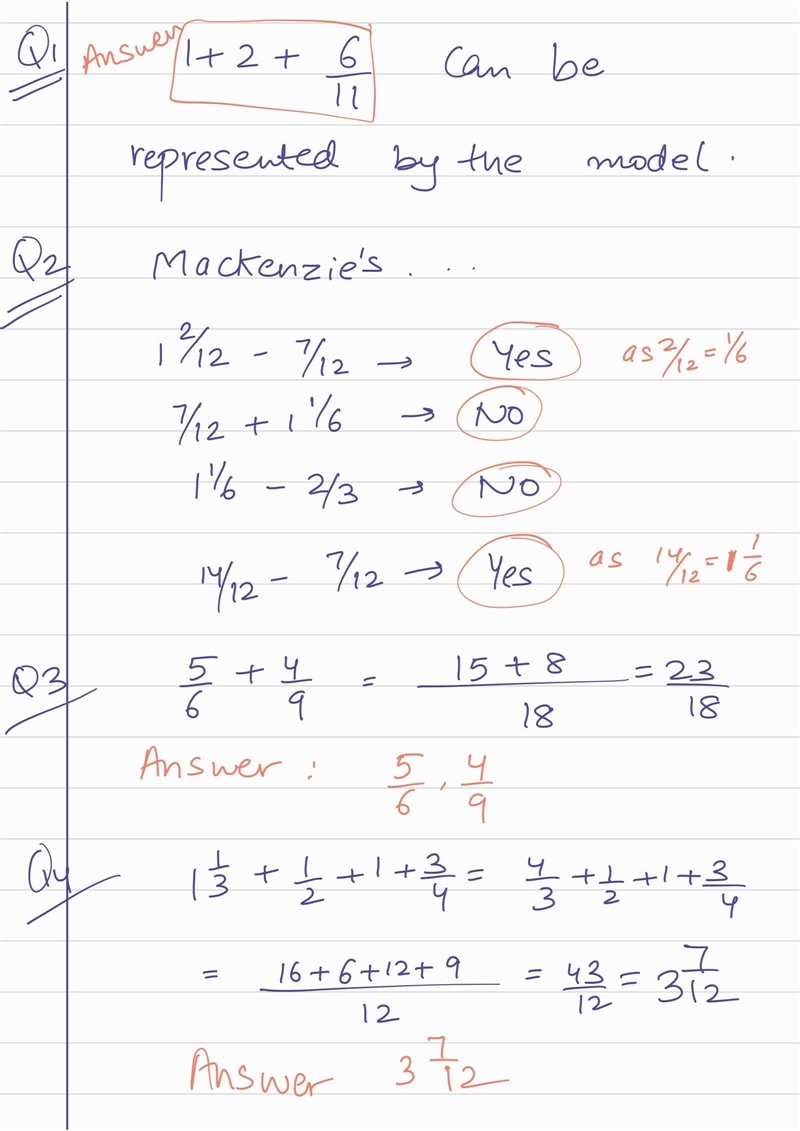 Q1 Answer 1 + 2 + 6/11 Can be
represented by the model.
Q2 Mackenzie's . . .
1 2/12 - 7/12 → Yes as 2/12 = 1/6
7/12 + 1 1/6 → NO
1 1/6 - 2/3 → NO
14/12 - 7/12 → Yes as 14/12 = 1 1/6
Q3 5/6 + 4/9 = 15 + 8/18 = 23/18
Answer : 5/6 , 4/9
Q4 1 1/3 + 1/2 + 1 + 3/4 = 4/3 + 1/2 + 1 + 3/4
= 16 + 6 + 12 + 9/12 = 43/12 = 3 7/12
Answer 3 7/12